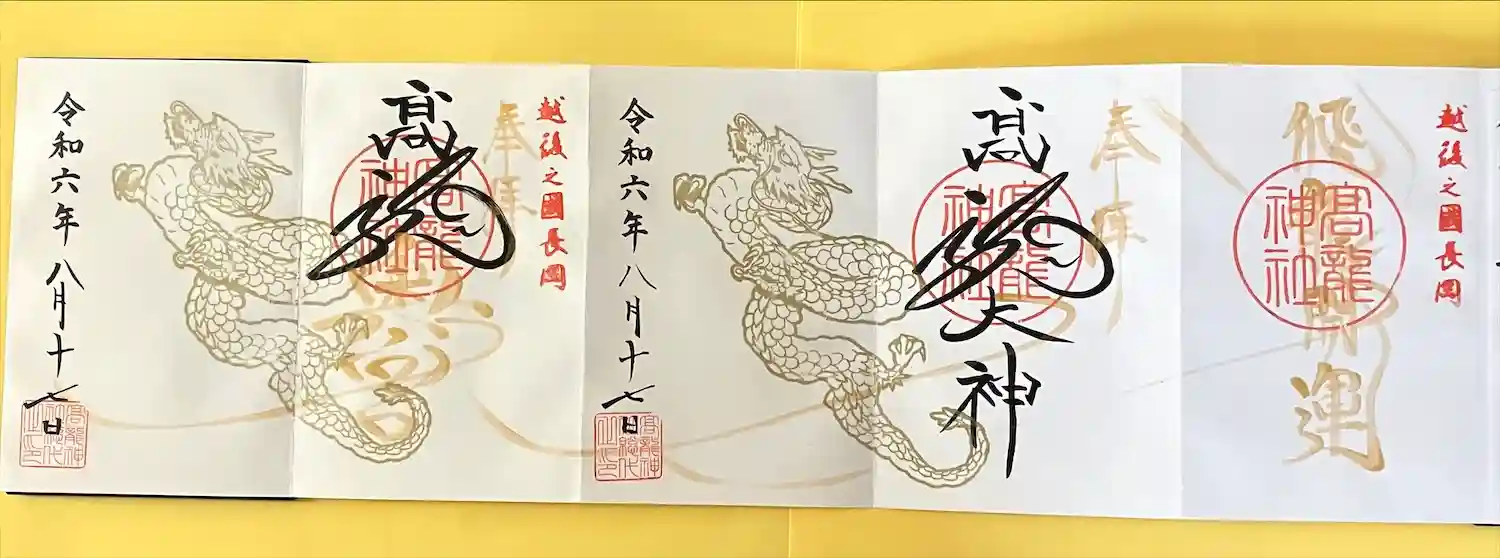 越後之國長岡
開運
髙龍
神社
奉拝
髙龍大神
髙龍
神社
令和六年八月十七日
越後之國長岡
奉拝
髙龍
髙龍
神社
令和六年八月十七日